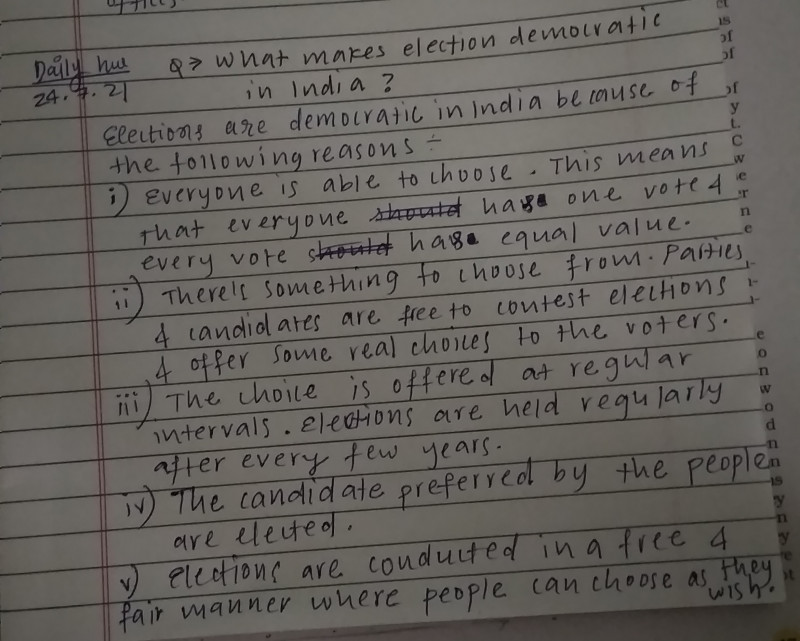 Daily hw Q→ What makes election democratic
24.7.21 in India?
Elections are democratic in India because of
the following reasons ÷
i) Everyone is able to choose. This means
that everyone should has one vote &
every vote should has equal value.
ii) There's something to choose from. Parties
& candidates are free to contest elections
& offer some real choices to the voters.
iii) The choice is offered at regular
intervals. Elections are held regularly
after every few years.
iv) The candidate preferred by the people
are elected.
v) Elections are conducted in a free &
fair manner where people can choose as they
wish.